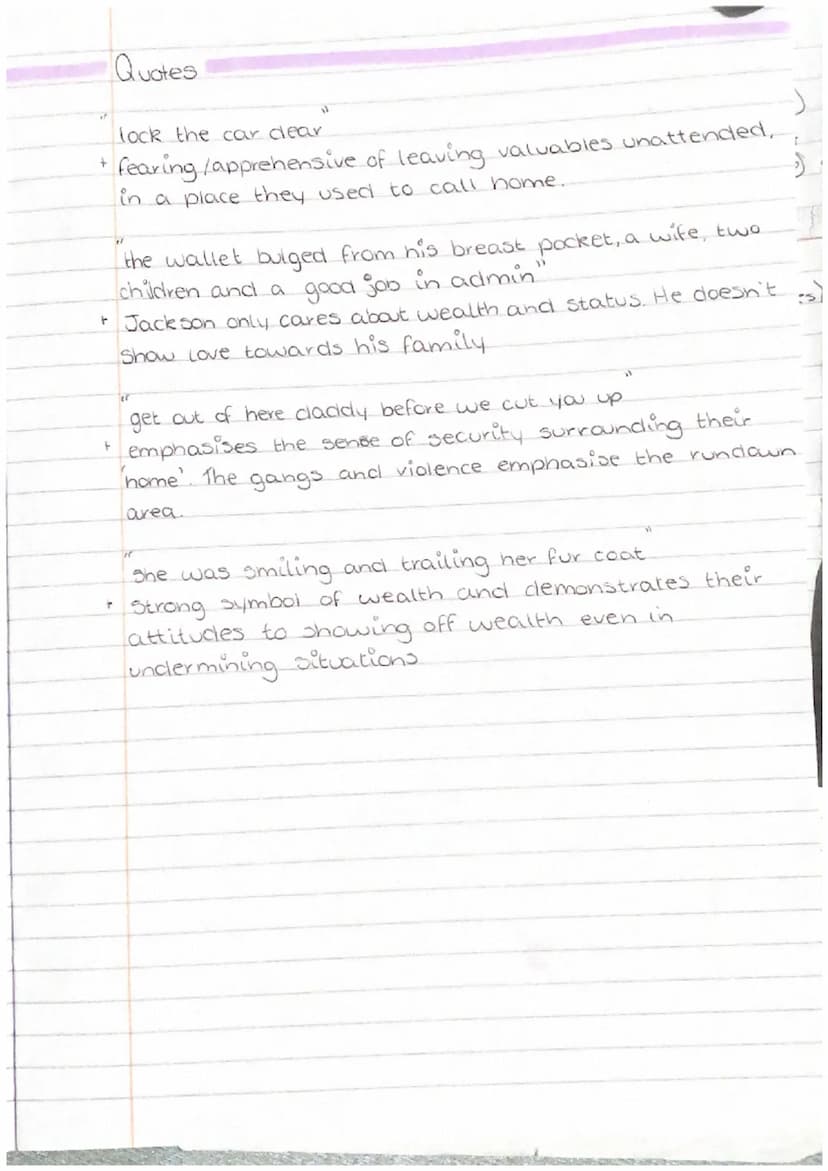 Quotes
"lock the car dear"
+ fearing/apprehensive of leaving valuables unattended,
in a place they used to call home.
"the wallet bulged from his breast pocket, a wife, two
children and a good job in admin"
+ Jackson only cares about wealth and status. He doesn't
show love towards his family
"get out of here daddy before we cut you up"
+ emphasises the sense of security surrounding their
'home'. The gangs and violence emphasise the rundown
area.
"She was smiling and trailing her fur coat"
+ Strong symbol of wealth and demonstrates their
attitudes to showing off wealth even in
undermining situations